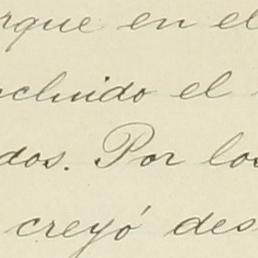 rque en el
cluido el
dos. Por los
creyó des